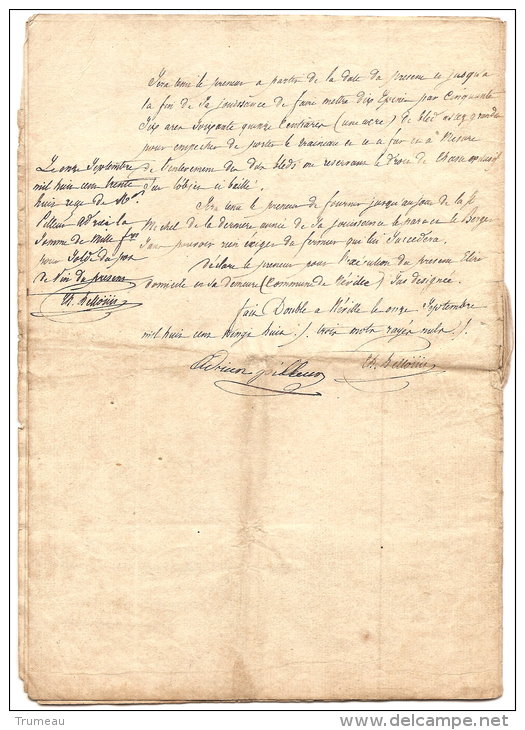 Sera tenu le preneur a partir de la date du present et jusqu'a
la fin de sa jouissance de faire mettre dix Epines par Cinquante
Six ares Soixante quinze Centiares (une acre) de bled assez grandes
pour empecher de porter le traineau et ce a fur et a Mesure
de l'enlevement des dits bleds se reservant le Droit de Chasse
Sur l'objet ci baillé.
Sera tenu le preneur de fournir jusqu'au jour de la St
Michel de la derniere année de Sa Jouissance le parc et le Berger
Sans pouvoir rien exiger du fermier qui lui Succedera.
déclare le preneur pour l'execution du present elire
domicile en Sa demeure (Commune de) Sus designée.
fait Double a le onze Septembre
mil huit cent trois mots rayés nuls ./.
Le onze Septembre
mil huit cent trente
huit reçu de Mr
Pilleux Adrien la
Somme de Mille frs
pour Solde du pot
de Vin du present
Adrien pilleux
Trumeau
delcampe.net